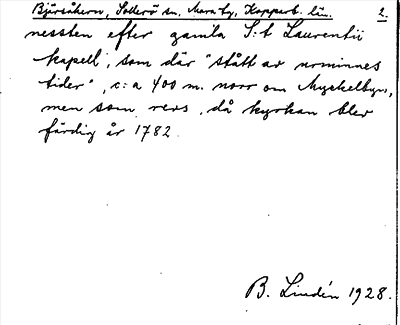 Björsåkern, Sollerö sn. Mora tg, Kopparb. län. 2.
nessten efter gamla S:t Laurentii
kapell, som där "stått av urminnes
tider", c:a 400 m. norr om Myckelbyn,
men som revs, då kyrkan blev
färdig år 1782.
B. Lindén 1928.